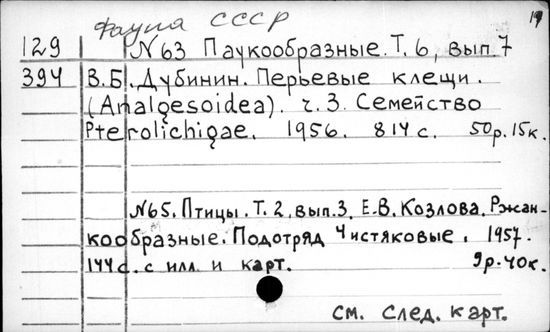 Фауна СССР
19
129 №63 Паукообразные. Т. 6, вып. 7
394 В.Б. Дубинин. Перьевые клещи.
(Analgesoidea). ч. 3. Семейство
Pterolichigae. 1956. 814 с. 50р. 15к.
№65. Птицы. Т. 2, вып. 3. Е.В. Козлова. Ржан-
кообразные. Подотряд Чистяковые. 1957.
144 с. с илл. и карт. 9р. 40к.
см. след. карт.